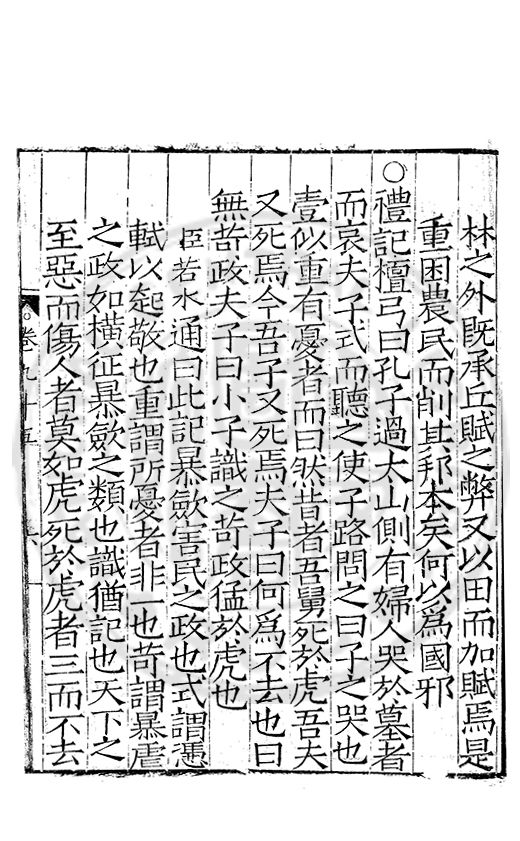 林之外既承丘賦之弊又以田而加賦焉是
重困農民而削其邦本矣何以爲國邪
○禮記檀弓曰孔子過太山側有婦人哭於墓者
而哀夫子式而聽之使子路問之曰子之哭也
壹似重有憂者而曰然昔者吾舅死於虎吾夫
又死焉今吾子又死焉夫子曰何爲不去也曰
無苛政夫子曰小子識之苛政猛於虎也
臣若水通曰此記暴歛害民之政也式謂憑
軾以起敬也重謂所憂者非一也苛謂暴虐
之政如橫征暴歛之類也識猶記也天下之
至惡而傷人者莫如虎死於虎者三而不去
卷九十五
六